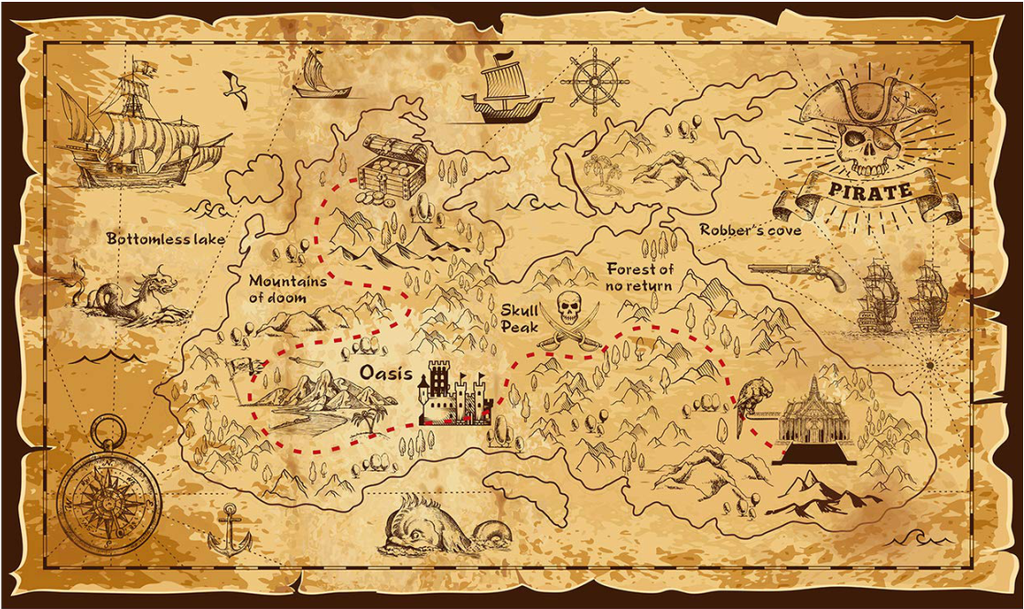 PIRATE
Bottomless lake
Robber's cove
Mountains
of doom
Forest of
no return
Skull
Peak
Oasis